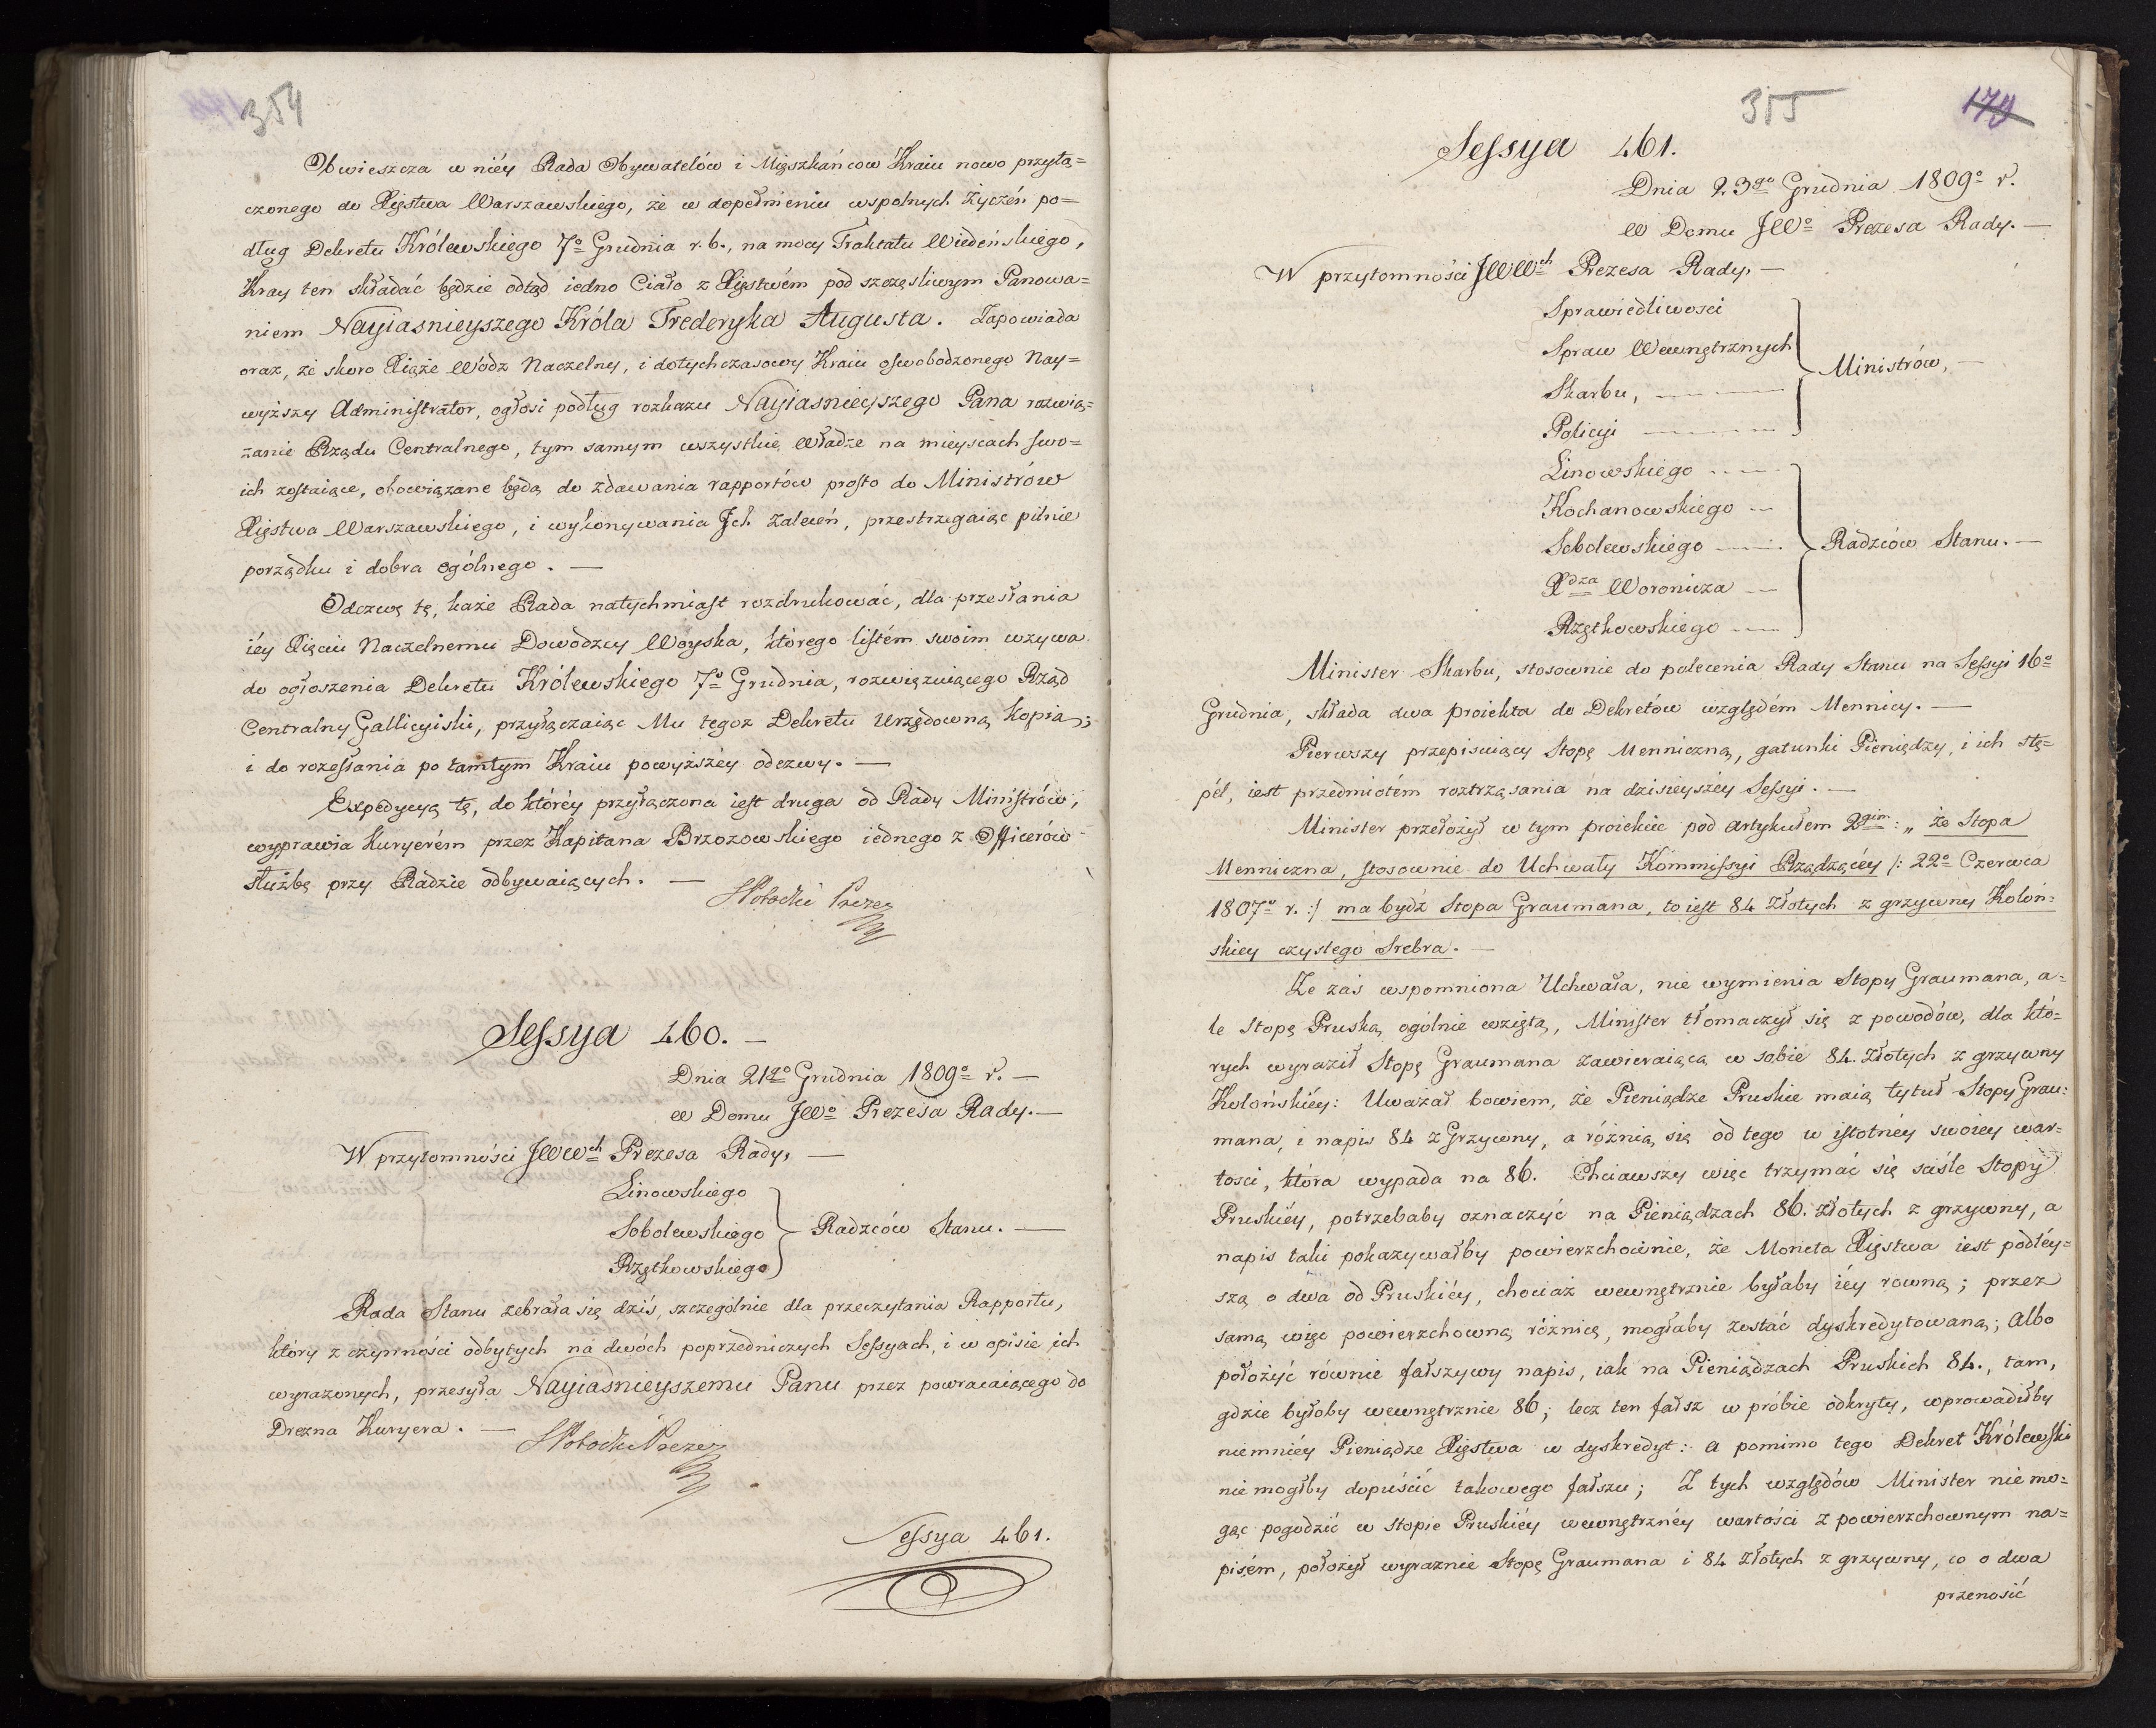 354
Obwieszcza w niéy Rada Obywatelów i Mięszkańcow Kraiu nowo przyłą=
czonego do Xięstwa Warszawskiego, że w dopełnieniu wspolnych Życzeń po=
dług Dekretu Królewskiego 7º Grudnia r. b., na mocy Traktatu Wiedeńskiego,
Kray ten składać będzie odtąd iedno Ciało z Xięstwém pod szczęsliwym Panowa=
niem Nayiasnieyszego Króla Frederyka Augusta. Zapowiada
oraz, że skoro Xiąże Wódz Naczelny, i dotychczasowy Kraiu oswobodzonego Nay=
wyższy Administrator, ogłosi podług rozkazu Nayiasnieyszego Pana rozwią=
zanie Rządu Centralnego, tym samym wszystkie Władze na mieyscach swo=
ich zostaiące, obowiązane będą do zdawania rapportów prosto do Ministrów
Xięstwa Warszawskiego, i wykonywania Jch Zaleceń, przestrzegaiąc pilnie
porządku i dobra ogólnego. —
Odezwę tę, każe Rada natychmiast rozdrukować, dla przesłania
iéy Xięciu Naczelnemu Dowodzcy Woyska, którego listém swoim wzywa
do ogłoszenia Dekretu Królewskiego 7º Grudnia, rozwięzuiącego Rząd
Centralny Gallicyiski, przyłączaiąc Mu tegoz Dekretu Urzędowną kopią;
i do rozesłania po tamtym Kraiu powyższéy odezwy. —
Expedycyą tę, do któréy przyłączona iest druga od Rady Ministrów,
wyprawia kuryerém przez Kapitana Brzozowskiego iednego z Officerów
służbę przy Radzie odbywaiących. —
SPotocki Prezes
Sessya 460. —
Dnia 21go Grudnia 1809º r. —
w Domu JWº Prezesa Rady. —
W przytomności JWWch Prezesa Rady, —
Linowskiego
Sobolewskiego } Radzców Stanu. —
Rzętkowskiego
Rada Stanu zebrała się dziś, szczególnie dla przeczytania Rapportu,
który z czynności odbytych na dwóch poprzedniczych Sessyach, i w opisie ich
wyrazonych, przesyła Nayiasnieyszemu Panu przez powracaiącego do
Drezna Kuryera. —
SPotocki Prezes
Sessya 461.
355
179
Sessya 461.
Dnia 23go Grudnia 1809º r.
w Domu JWº Prezesa Rady. —
W przytomności JWWch Prezesa Rady, —
Sprawiedliwosci
Spraw Wewnętrznych
Skarbu, — } Ministrów, —
Policyi —
Linowskiego —
Kochanowskiego —
Sobolewskiego — } Radzców Stanu. —
Xdza Woronicza —
Rzętkowskiego —
Minister Skarbu, stosownie do polecenia Rady Stanu na Sessyi 16º
Grudnia, składa dwa proiekta do Dekretów względém Mennicy. —
Pierwszy przepisuiący Stopę Menniczną, gatunki Pieniędzy, i ich stę=
pél, iest przedmiotém roztrząsania na dzisieyszéy Sessyi. —
Minister przełożył w tym proiekcie pod artykułem 2gim: „ że Stopa
Menniczna, stosownie do Uchwały Kommissyi Rządzącéy /: 22º Czerwca
1807º r. :/ ma bydź Stopa Graumana, to iest 84 złotych z grzywny Koloń=
skiey czystego Srebra. —
Ze zaś wspomniona Uchwała, nie wymienia Stopy Graumana, a=
le Stopę Pruską ogólnie wziętą, Minister tłomaczył się z powodów, dla któ=
rych wyraził Stopę Graumana zawieraiącą w sobie 84. złotych z grzywny
Kolońskiéy: Uważał bowiem, że Pieniądze Pruskie maią tytuł Stopy Grau:
mana, i napis 84 z Grzywny, a różnią się od tego w istotnéy swoiey war=
tosci, która wypada na 86. Chciawszy więc trzymać się ściśle Stopy
Pruskiéy, potrzebaby oznaczyć na Pieniądzach 86. złotych z grzywny, a
napis taki pokazywałby powierzchownie, że Moneta Xięstwa iest podléy=
szą o dwa od Pruskiéy, chociaż wewnętrznie byłaby iéy rowną; przez
samą więc powierzchowną różnicę, mogłaby zostać dyskredytowaną; Albo
położyć równie fałszywy napis, iak na Pieniądzach Pruskich 84., tam,
gdzie byłoby wewnętrznie 86; lecz ten fałsz w próbie odkryty, wprowadiłby
niemniéy Pieniądze Xięstwa w dyskredyt: a pomimo tego Dekret Królewski
nie mogłby dopuścić takowego fałszu; Z tych względów Minister nie mo=
gąc pogodzić w Stopie Pruskiéy wewnętrznéy wartości z powierzchownym na=
pisém, położył wyraznie Stopę Graumana i 84 złotych z grzywny, co o dwa
przenosić